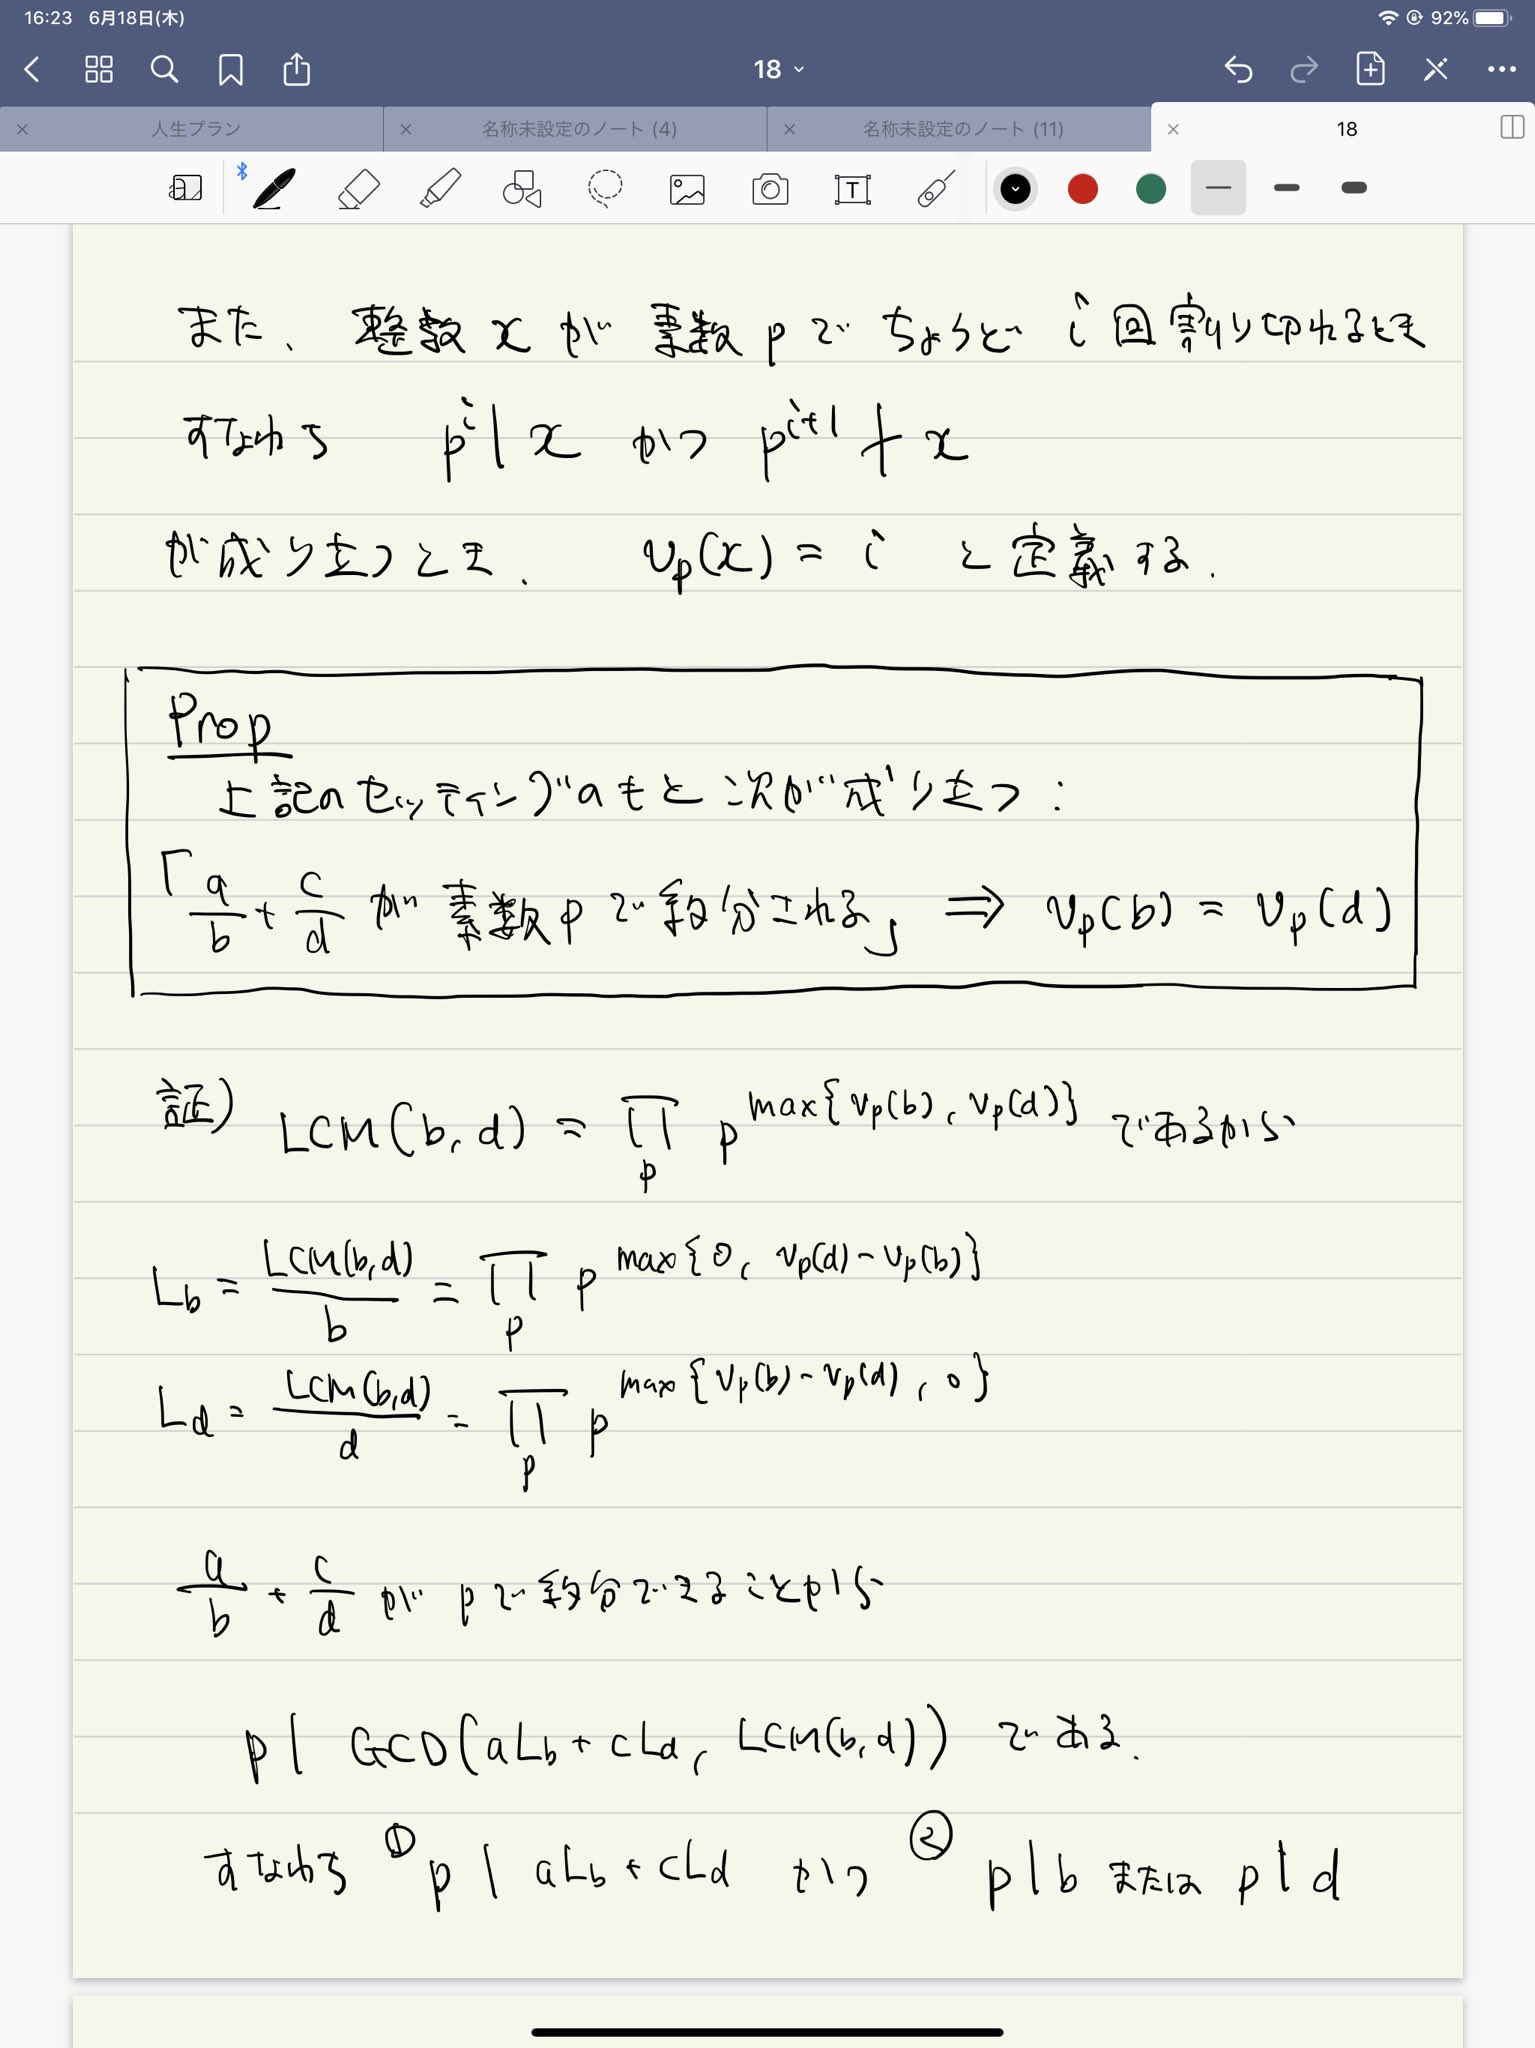 16:23 6月18日(木) 92%
18
人生プラン 名称未設定のノート (4) 名称未設定のノート (11) 18
また、整数 x が 素数 p で ちょうど i 回 割り切れるとき
すなわち p^i | x かつ p^{i+1} ∤ x
が成り立つとき、 v_p(x) = i と定義する.
Prop
上記のセッティングのもと次が成り立つ:
「a/b + c/d が素数 p で約分される」 ⇒ v_p(b) = v_p(d)
証) LCM(b, d) = ∏_p p^{max{v_p(b), v_p(d)}} であるから
L_b = LCM(b,d)/b = ∏_p p^{max{0, v_p(d) - v_p(b)}}
L_d = LCM(b,d)/d = ∏_p p^{max{v_p(b) - v_p(d), 0}}
a/b + c/d が p で約分できることから
p | GCD(aL_b + cL_d, LCM(b,d)) である.
すなわち ① p | aL_b + cL_d かつ ② p | b または p | d